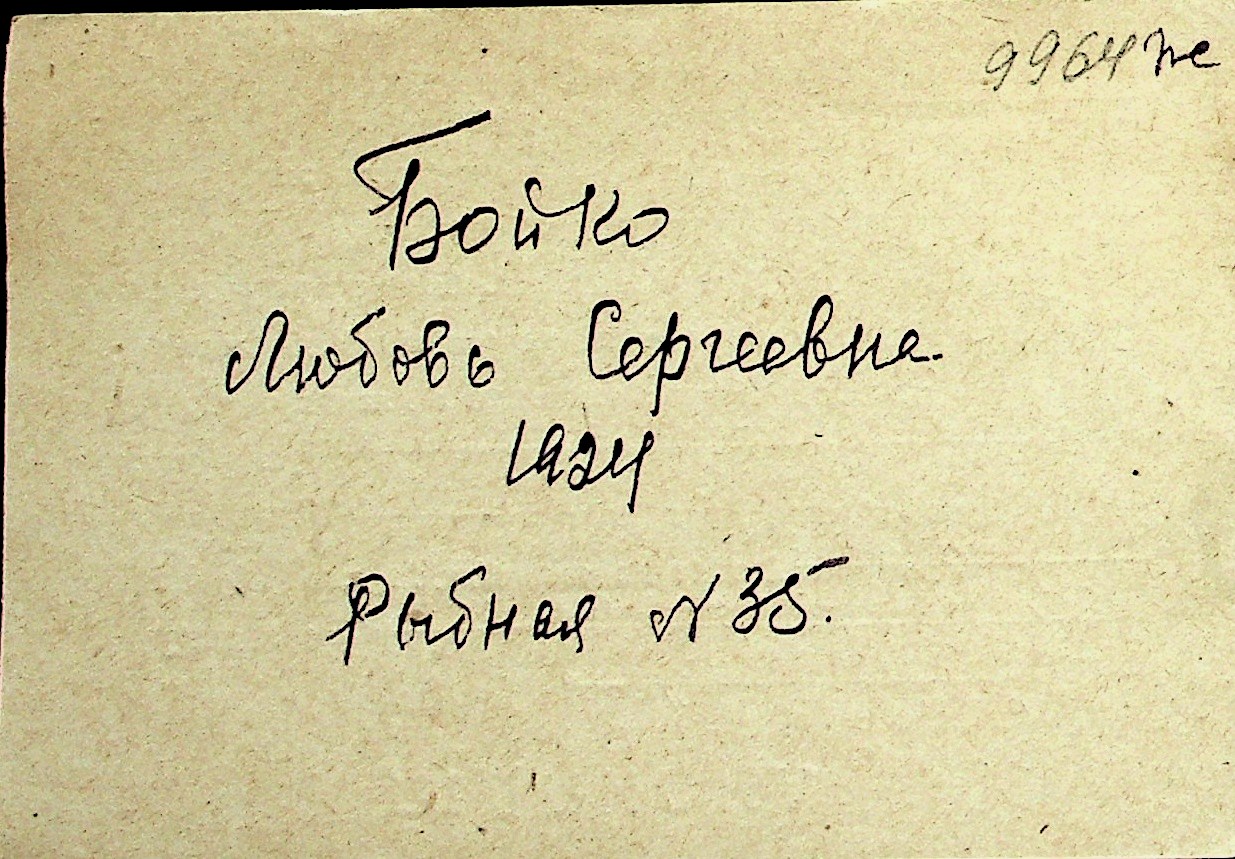 9964 же
Бойко
Любовь Сергеевна
1924
Рыбная N 35.